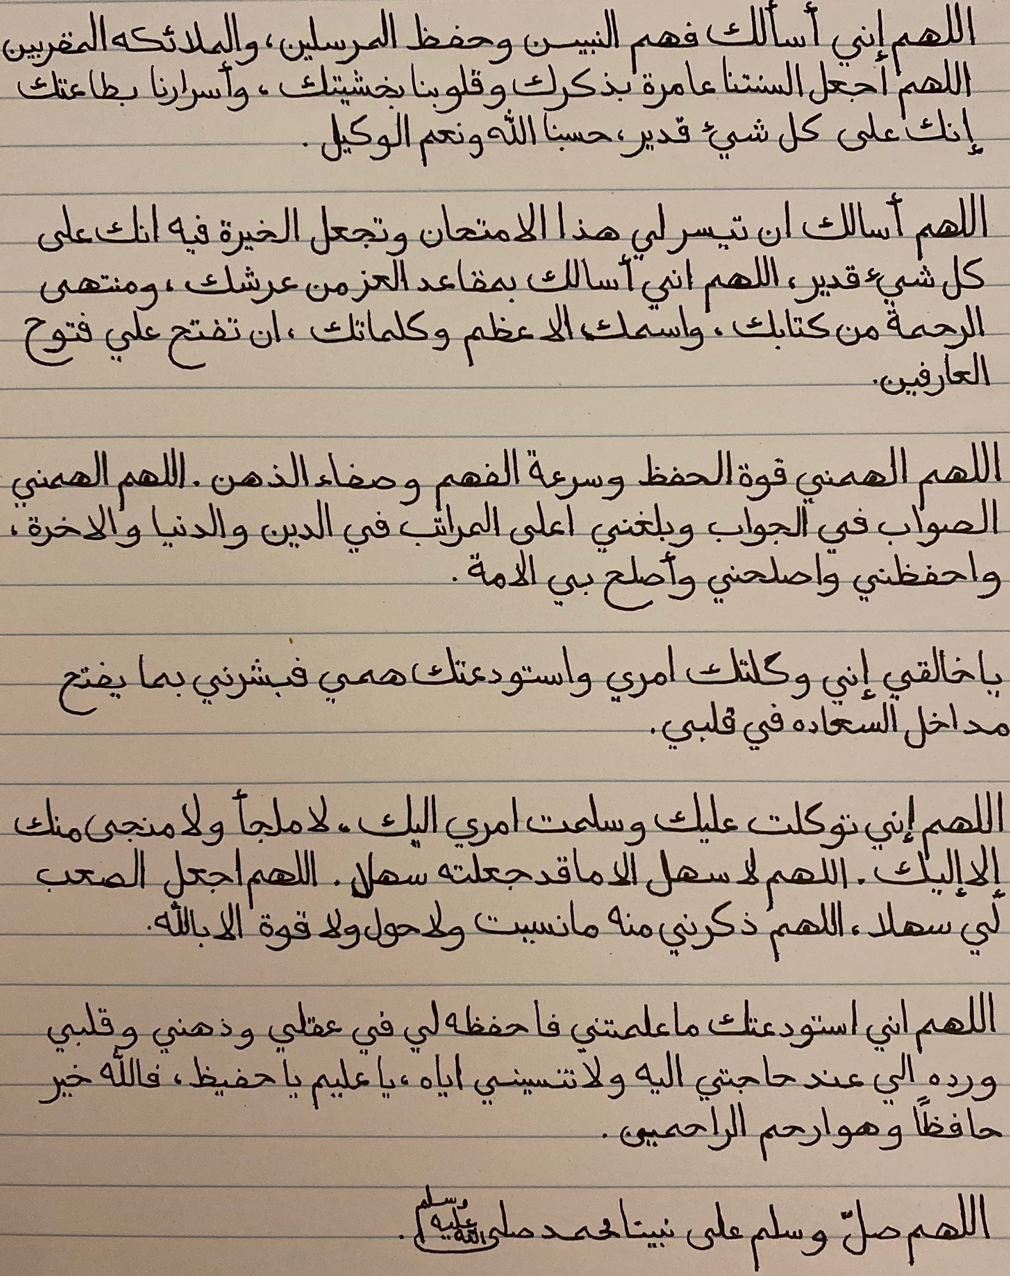 اللهم إنني أسألك فهم النبيين وحفظ المرسلين، والملائكه المقربين
اللهم أجعل السنتنا عامرة بذكرك وقلوبنا بخشيتك، وأسرارنا بطاعتك
إنك على كل شيء قدير، حسبنا الله ونعم الوكيل.
اللهم أسالك ان تيسر لي هذا الامتحان وتجعل الخيرة فيه انك على
كل شيء قدير، اللهم اني أسالك بمقاعد العز من عرشك، ومنتهى
الرحمة من كتابك، واسمك الاعظم وكلماتك، ان تفتح علي فتوح
العارفين.
اللهم الهمني قوة الحفظ وسرعة الفهم وصفاء الذهن. اللهم الهمني
الصواب في الجواب وبلغني اعلى المراتب في الدين والدنيا والاخرة،
واحفظني واصلحني وأصلح بي الامة.
ياخالقي إنني وكلتك امري واستودعتك همي فبشرني بما يفتح
مداخل السعاده في قلبي.
اللهم إنني توكلت عليك وسلمت امري اليك، لا ملجأ ولا منجى منك
إلا إليك. اللهم لا سهل الا ما قد جعلته سهلا. اللهم اجعل الصعب
لي سهلا، اللهم ذكرني منه مانسيت ولا حول ولا قوة الا بالله.
اللهم انني استودعتك ماعلمتني فاحفظه لي في عقلي وذهني وقلبي
ورده الي عند حاجتي اليه ولا تنسيني اياه، يا عليم يا حفيظ، فالله خير
حافظًا وهو ارحم الراحمين.
اللهم صلّ وسلم على نبينا محمد صلى الله عليه وسلم.